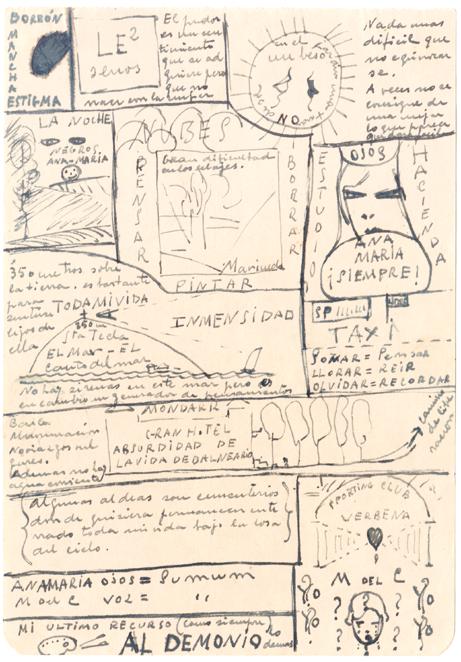 BORRÓN
MANCHA
ESTIGMA
LE²
senos
El pudor
es un sen
timiento
que se ad
quiere pero
que no
nace con la mujer
en el
un beso
NO
Nada mas
dificil que
no equivocar
se.
A veces no se
consigue de
una mujer
lo que parece
LA NOCHE
NEGROS,
ANA-MARIA
NUBES
PENSAR
Gran dificultad
en los celajes.
BORRAR
Marinada
PINTAR
ESTUDIO
OJOS
HACIENDA
ANA
MARIA
¡SIEMPRE!
350 metros sobre
la tierra. es bastante
para
sentirse
lejos de
ella
TODA MI VIDA
350 m
Sta Tecla
EL Mar - EL
Canto del mar
INMENSIDAD
No hay sirenas en este mar pero
en cambio un generador de pensamientos
SP
TAXI
FUMAR = Pensar
LLORAR = REIR
OLVIDAR = RECORDAR
Baile
Iluminación
Norias
Ademas no hay
agua corriente
MONDARIZ
GRAN HOTEL
ABSURDIDAD DE
LA VIDA DE BALNEARIO
Camino
de
Algunas aldeas son cementerios
donde quisiera permanecer ente
rrado toda mi vida bajo la losa
del cielo.
SPORTING CLUB
VERBENA
M DEL C
YO
YO
ANAMARIA OJOS = Sumum
M del C VOZ = "
MI ULTIMO RECURSO (como siempre)
AL DEMONIO lo
demas